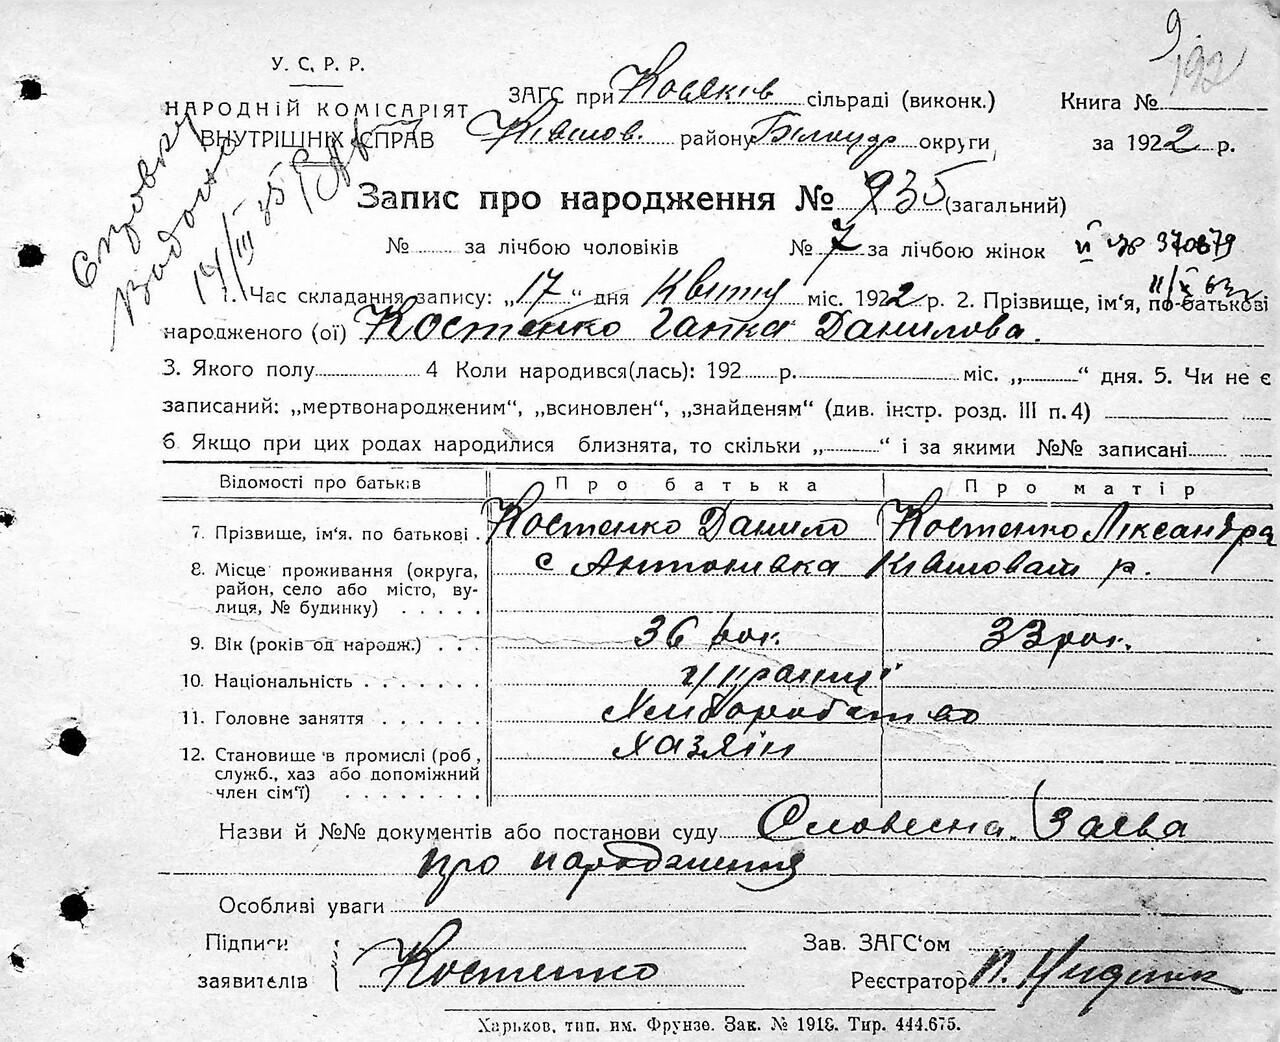 9.
192
У. С. Р. Р.
НАРОДНІЙ КОМІСАРІЯТ
ВНУТРІШНІХ СПРАВ
ЗАГС при Косяків сільраді (виконк.)
Книга №
району Білоцер округи
за 1922 р.
Запис про народження № 935 (загальний)
№ за лічбою чоловіків № 7 за лічбою жінок
370879
14/III 35
1. Час складання запису: „17“ дня Квітня міс. 1922 р. 2. Прізвище, ім'я, по-батькові
народженого (ої) Костенко Гапка Данилова.
3. Якого полу 4 Коли народився(лась): 192 р. міс. „ “ дня. 5. Чи не є
записаний: „мертвонародженим“, „всиновлен“, „знайденям“ (див. інстр. розд. III п. 4)
6. Якщо при цих родах народилися близнята, то скільки „ “ і за якими №№ записані
Відомості про батьків Про батька Про матір
7. Прізвище, ім'я. по батькові Костенко Данило Костенко Ліксандра
8. Місце проживання (округа, с Антонивка р.
район, село або місто, ву-
лиця, № будинку)
9. Вік (років од народж.) 36 рок. 33 рок.
10. Національність
11. Головне заняття Хліборобство
12. Становище в промислі (роб, Хазяін
служб., хаз або допоміжний
член сім'ї)
Назви й №№ документів або постанови суду Словесна Заева
про народження
Особливі уваги
Підписи Зав. ЗАГС'ом
заявителів Костенко Реєстратор
Харьков, тип. им. Фрунзе. Зак. № 1918. Тир. 444.675.